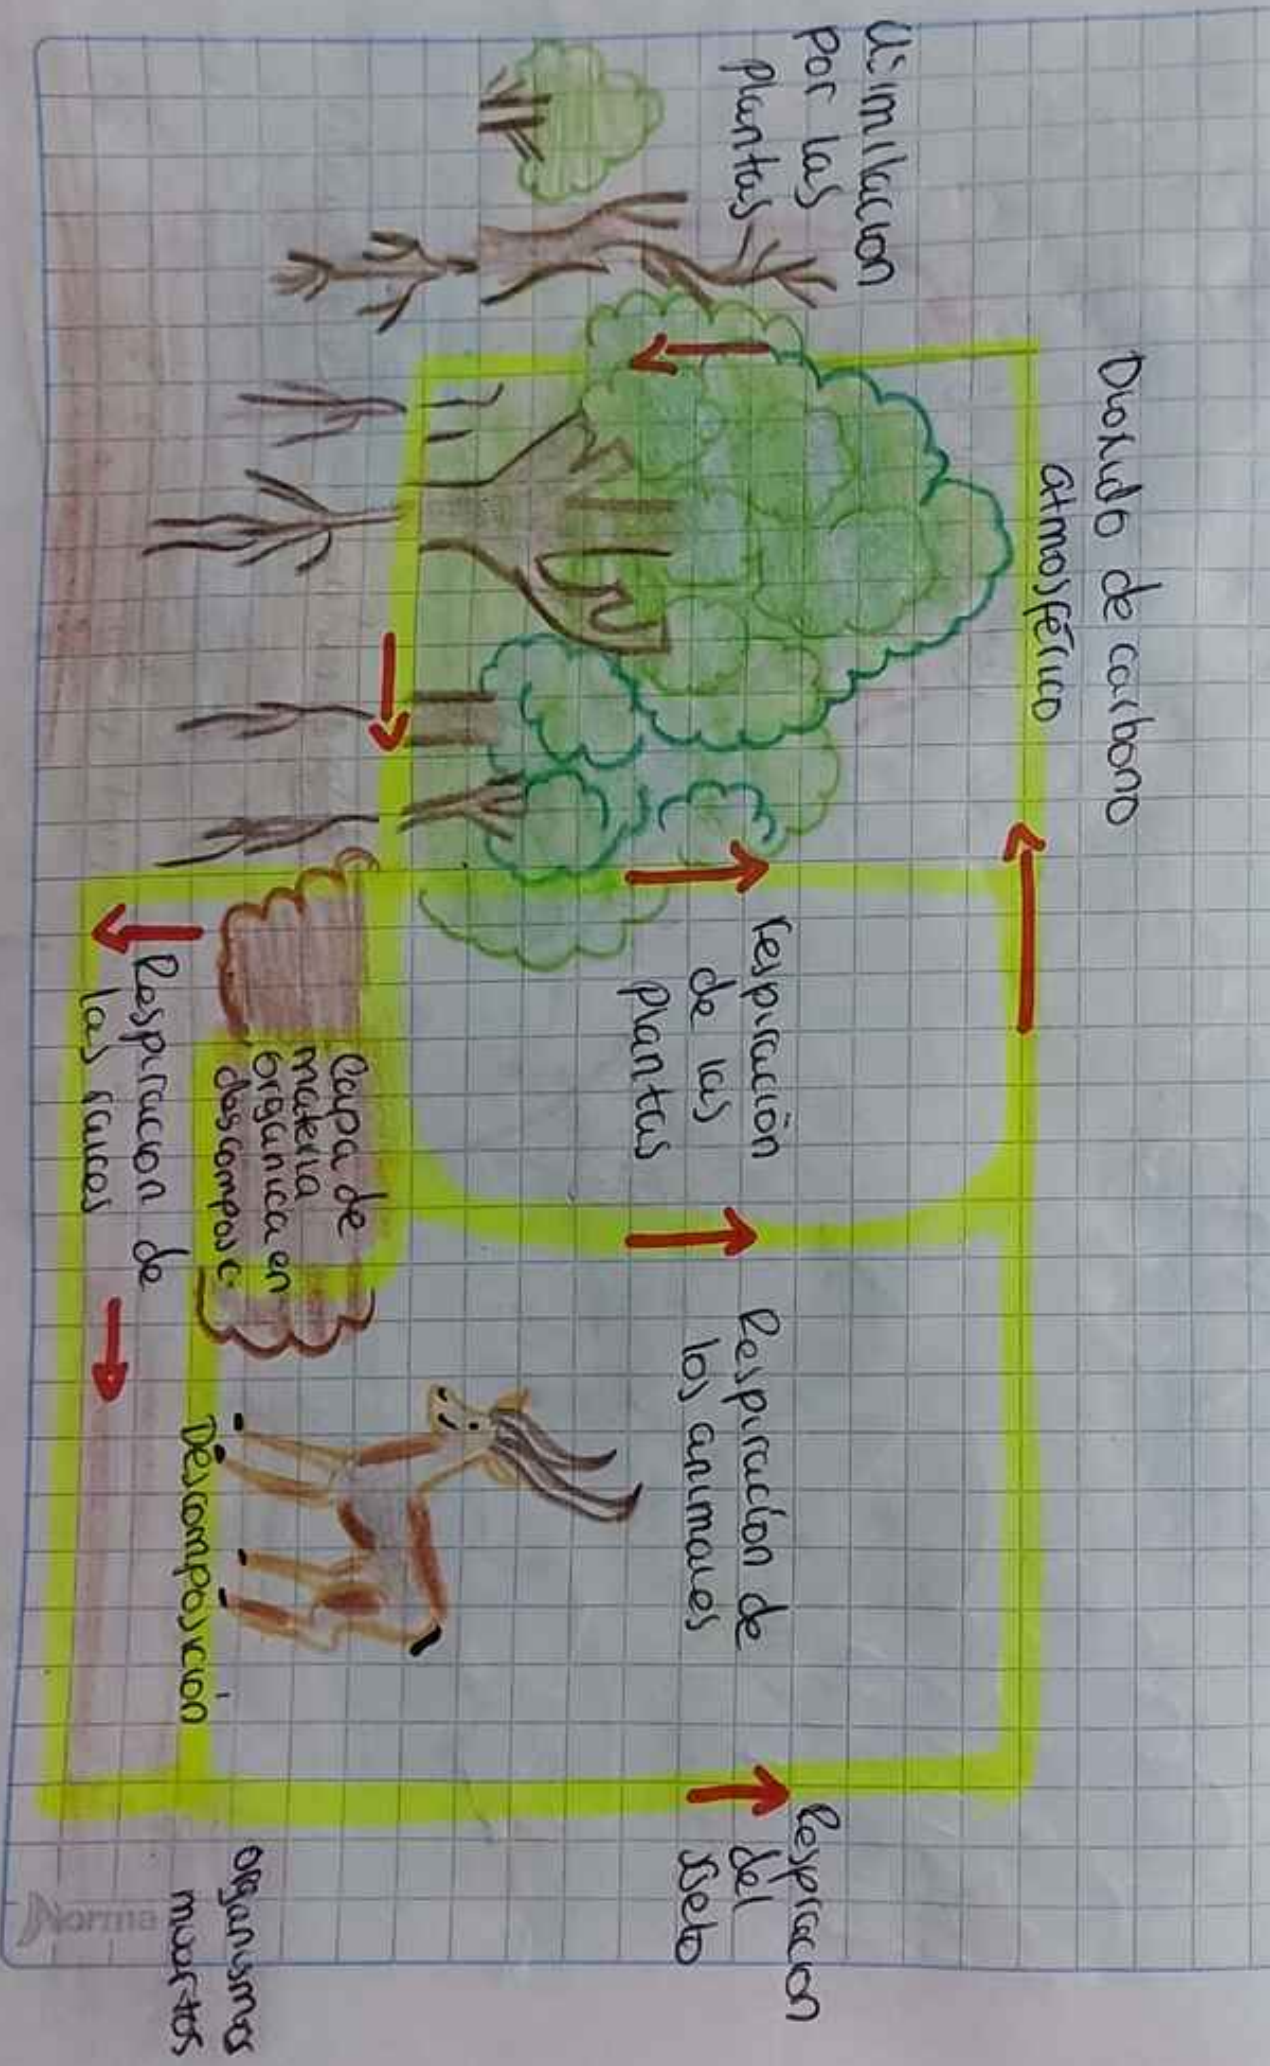 Dioxido de carbono
atmosférico
Asimilacion
por las
plantas
respiración
de las
plantas
Respiración de
los animales
Respiracion
del
Capa de
materia
organica en
descomposic
Respiracion de
las raices
Descomposición
organismos
muertos
Norma